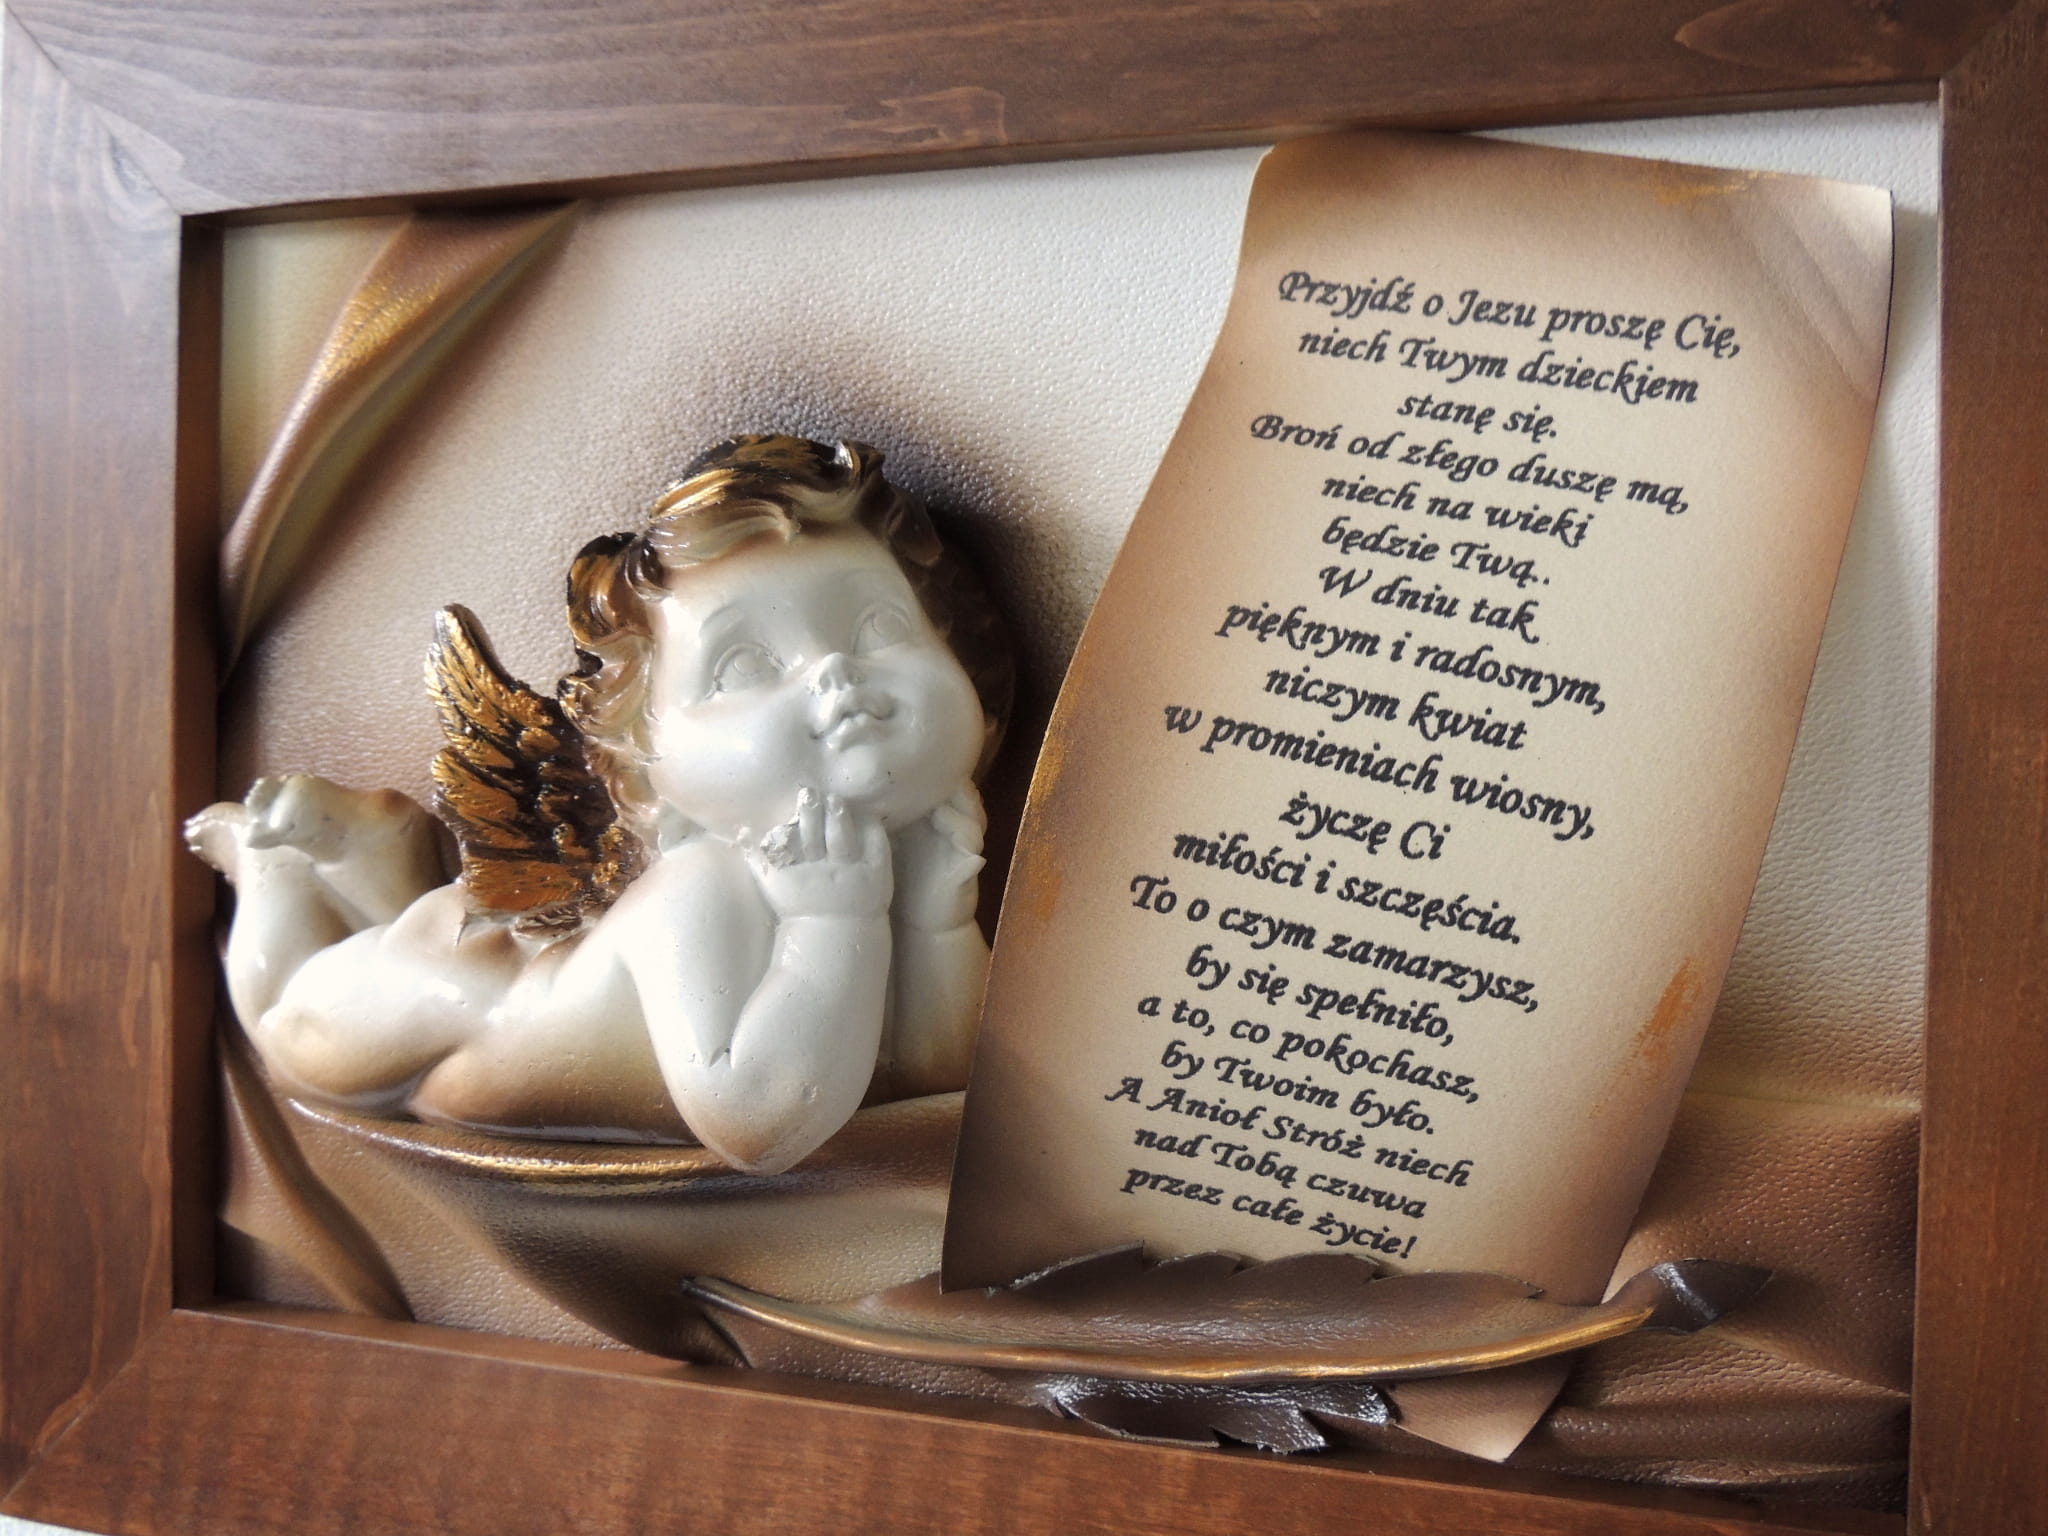 Przyjdź o Jezu proszę Cię,
niech Twym dzieckiem
stanę się.
Broń od złego duszę mą,
niech na wieki
będzie Twą..
W dniu tak
pięknym i radosnym,
niczym kwiat
w promieniach wiosny,
życzę Ci
miłości i szczęścia.
To o czym zamarzysz,
by się spełniło,
a to, co pokochasz,
by Twoim było.
A Anioł Stróż niech
nad Tobą czuwa
przez całe życie!